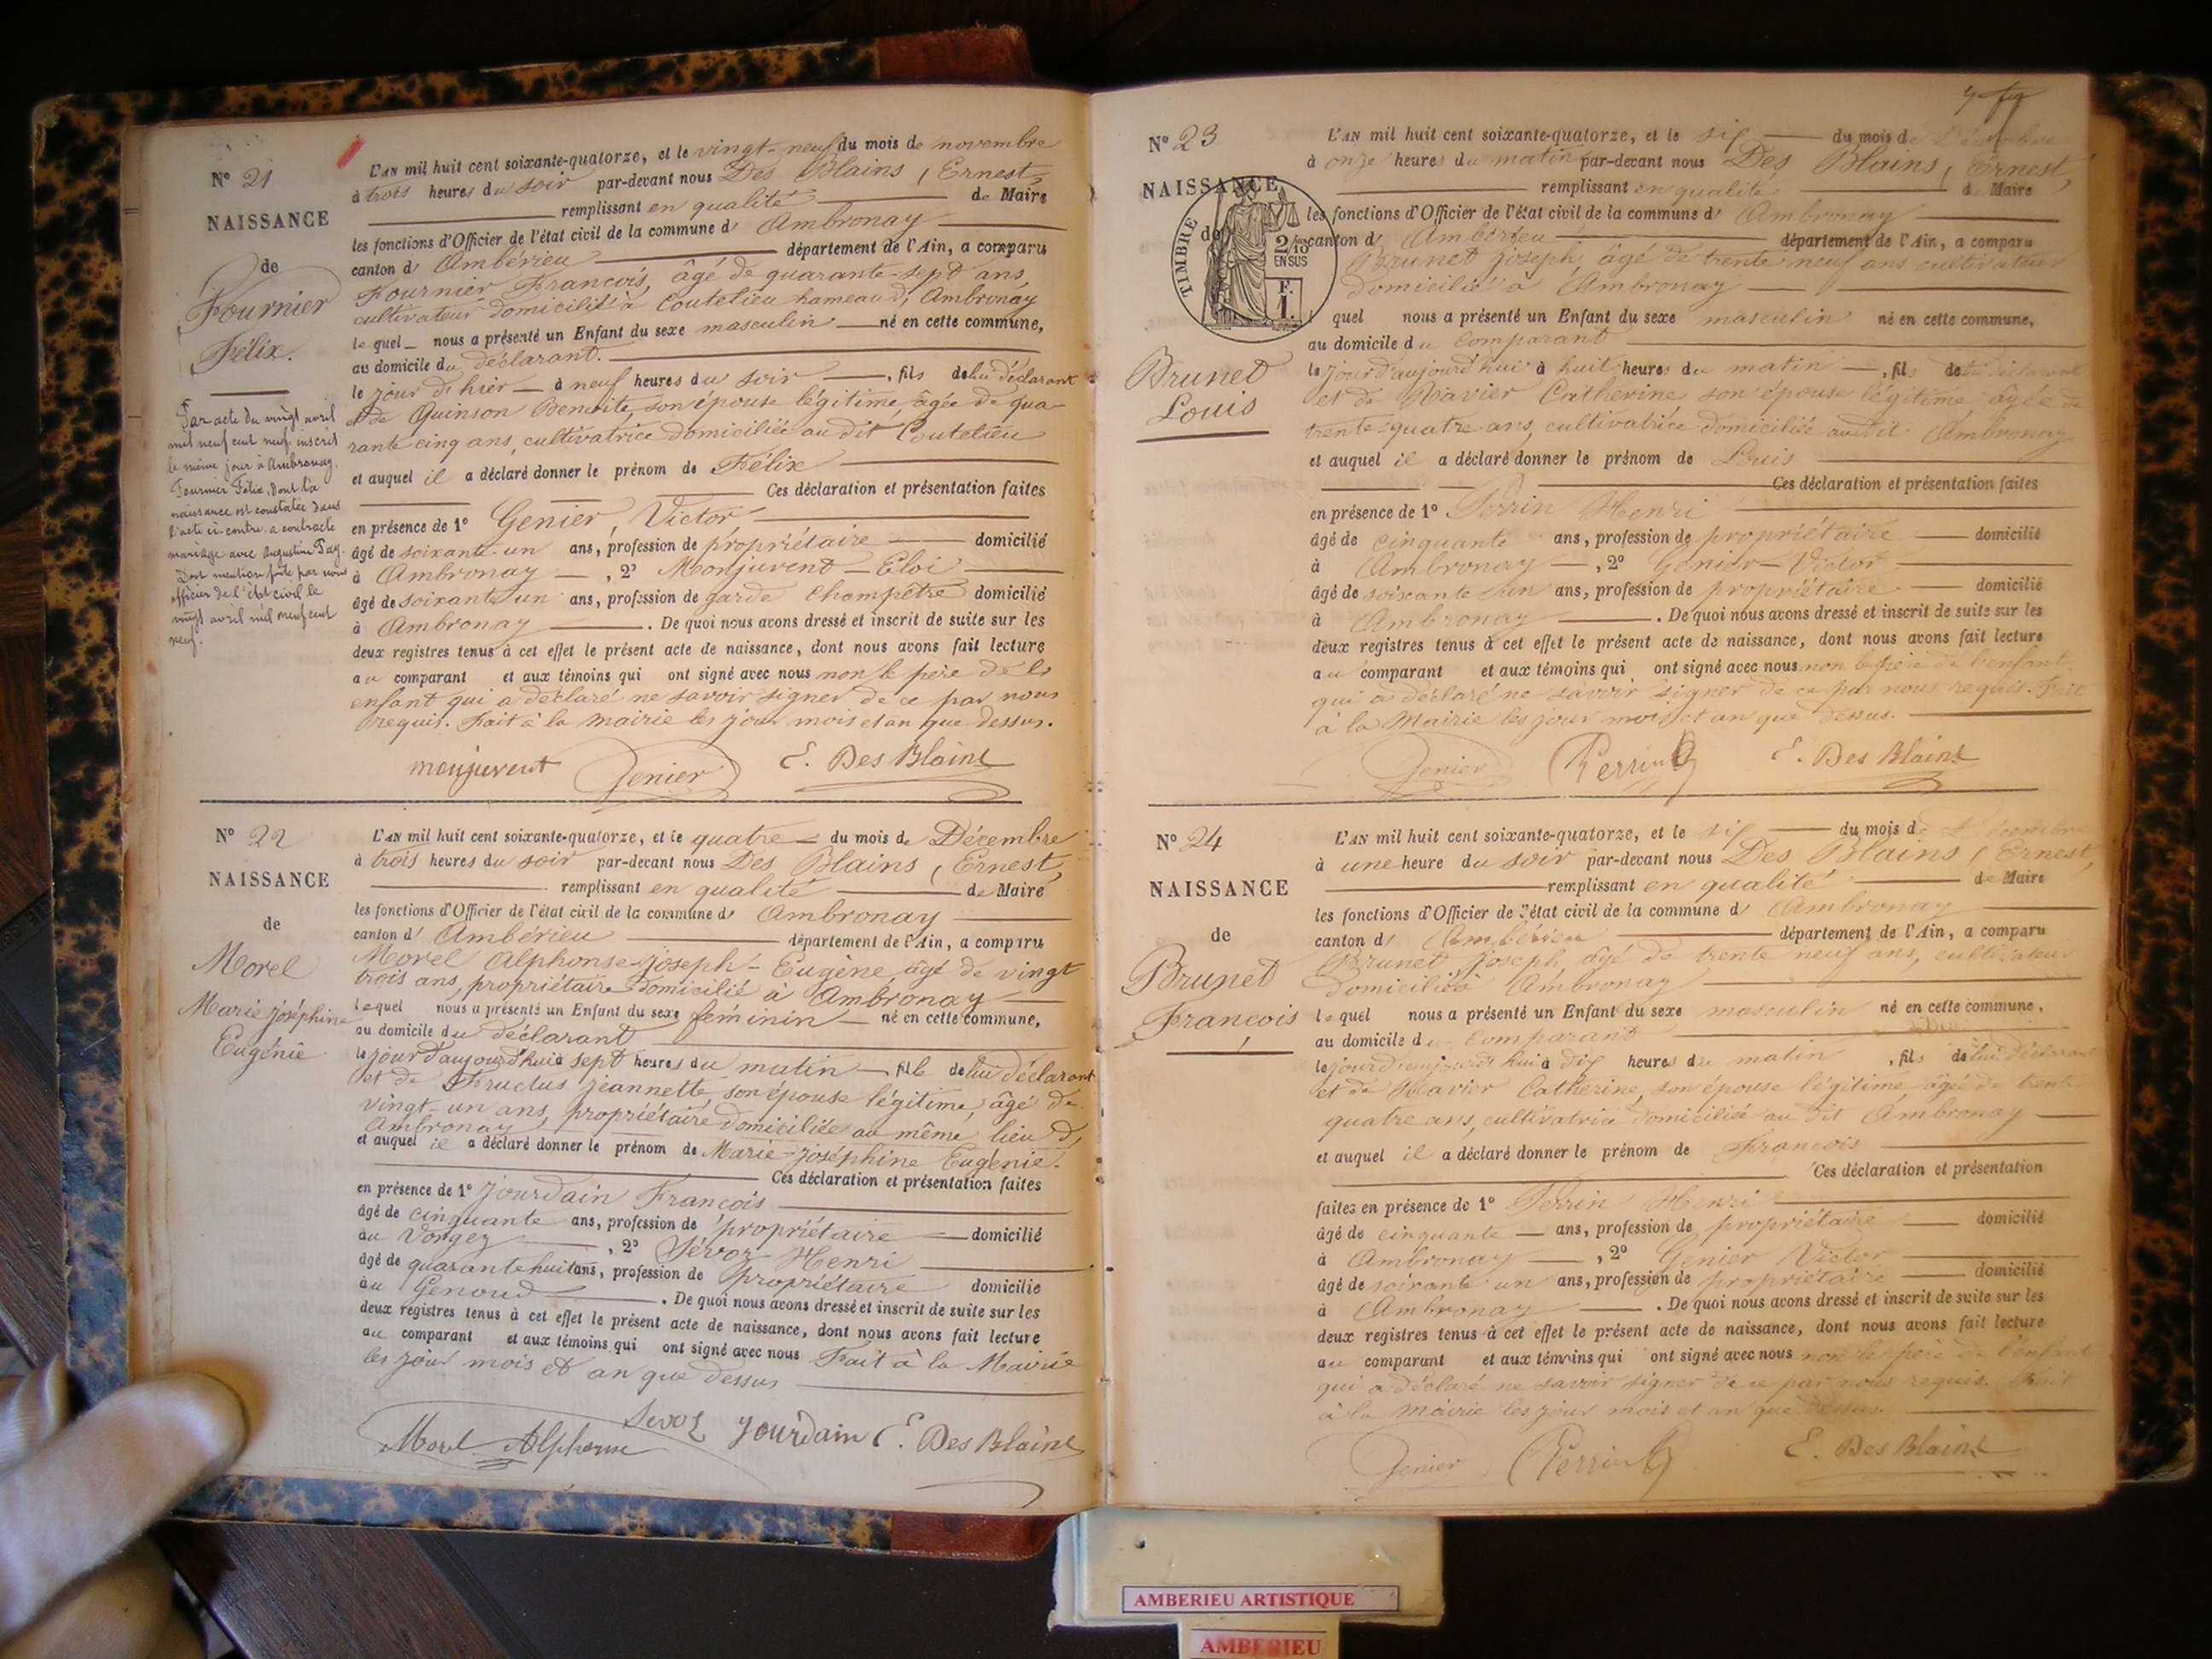 N° 21
NAISSANCE
de
Fournier
Félix.
Par acte du vingt avril
mil neuf cent neuf inscrit
le même jour à Ambronay,
Fournier Félix, dont la
naissance est constatée dans
l'acte ci-contre a contracté
mariage avec Augustine Pay.
Dont mention faite par nous
officier de l'état civil le
vingt avril mil neuf cent
neuf.
L'AN mil huit cent soixante-quatorze, et le vingt-neuf du mois de novembre
à trois heures du soir par-devant nous Des Blains, Ernest,
remplissant en qualité de Maire
les fonctions d'Officier de l'état civil de la commune d' Ambronay
canton d' Ambérieu département de l'Ain, a comparu
Fournier François, âgé de quarante-sept ans,
cultivateur domicilié à Coutelieu hameau d' Ambronay
lequel nous a présenté un Enfant du sexe masculin né en cette commune,
au domicile du déclarant.
le jour d'hier à neuf heures du soir, fils de lui déclarant
et de Quinson Benoite, son épouse légitime, âgée de qua-
rante cinq ans, cultivatrice domiciliée au dit Coutelieu
et auquel il a déclaré donner le prénom de Félix
Ces déclaration et présentation faites
en présence de 1° Genier, Victor
âgé de soixante-un ans, profession de propriétaire domicilié
à Ambronay, 2° Monjuvent-Eloi
âgé de soixante un ans, profession de garde champêtre domicilié
à Ambronay. De quoi nous avons dressé et inscrit de suite sur les
deux registres tenus à cet effet le présent acte de naissance, dont nous avons fait lecture
au comparant et aux témoins qui ont signé avec nous non le père de l'
enfant qui a déclaré ne savoir signer de ce par nous
requis. Fait à la mairie les jour mois et an que dessus.
monjuvent Genier E. Des Blains
N° 22
NAISSANCE
de
Morel
Marie Joséphine
Eugénie
L'AN mil huit cent soixante-quatorze, et le quatre du mois de Décembre
à trois heures du soir par-devant nous Des Blains, Ernest,
remplissant en qualité de Maire
les fonctions d'Officier de l'état civil de la commune d' Ambronay
canton d' Ambérieu département de l'Ain, a comparu
Morel Alphonse-Joseph-Eugène, âgé de vingt
trois ans, propriétaire domicilié à Ambronay
lequel nous a présenté un Enfant du sexe féminin né en cette commune,
au domicile du déclarant
le jour d'aujourd'hui à sept heures du matin, fille de lui déclarant
et de Fructus Jeannette, son épouse légitime, âgé de
vingt-un ans, propriétaire domiciliée au même lieu d'
Ambronay,
et auquel il a déclaré donner le prénom de Marie-Joséphine Eugénie.
Ces déclaration et présentation faites
en présence de 1° Jourdain François
âgé de cinquante ans, profession de propriétaire domicilié
au Vorgey, 2° Sévoz Henri
âgé de quarante huit ans, profession de propriétaire domicilié
au Genoud. De quoi nous avons dressé et inscrit de suite sur les
deux registres tenus à cet effet le présent acte de naissance, dont nous avons fait lecture
au comparant et aux témoins qui ont signé avec nous Fait à la Mairie
les jour mois et an que dessus
Morel Alphonse Sevoz Jourdain E. Des Blains
N° 23
NAISSANCE
de
TIMBRE
2/10 EN SUS
F. 1.
Brunet
Louis
L'AN mil huit cent soixante-quatorze, et le six du mois de Décembre
à onze heures du matin par-devant nous Des Blains, Ernest,
remplissant en qualité de Maire
les fonctions d'Officier de l'état civil de la commune d' Ambronay
canton d' Ambérieu département de l'Ain, a comparu
Brunet Joseph, âgé de trente neuf ans cultivateur
domicilié à Ambronay
quel nous a présenté un Enfant du sexe masculin né en cette commune,
au domicile du comparant
le jour d'aujourd'hui à huit heures du matin, fils de lui déclarant
et de Navier Catherine son épouse légitime âgée de
trente-quatre ans, cultivatrice domiciliée au dit Ambronay
et auquel il a déclaré donner le prénom de Louis
Ces déclaration et présentation faites
en présence de 1° Perrin Henri
âgé de cinquante ans, profession de propriétaire domicilié
à Ambronay, 2° Genier-Victor
âgé de soixante un ans, profession de propriétaire domicilié
à Ambronay. De quoi nous avons dressé et inscrit de suite sur les
deux registres tenus à cet effet le présent acte de naissance, dont nous avons fait lecture
au comparant et aux témoins qui ont signé avec nous non le père de l'enfant
qui a déclaré ne savoir signer de ce par nous requis. Fait
à la Mairie les jour mois et an que dessus.
Genier Perrin E. Des Blains
N° 24
NAISSANCE
de
Brunet
François
L'AN mil huit cent soixante-quatorze, et le six du mois de Décembre
à une heure du soir par-devant nous Des Blains, Ernest,
remplissant en qualité de Maire
les fonctions d'Officier de l'état civil de la commune d' Ambronay
canton d' Ambérieu département de l'Ain, a comparu
Brunet Joseph, âgé de trente neuf ans, cultivateur
domicilié à Ambronay
lequel nous a présenté un Enfant du sexe masculin né en cette commune,
au domicile du comparant
le jour d'aujourd'hui à dix heures du matin, fils de lui déclarant
et de Navier Catherine, son épouse légitime, âgée de trente
quatre ans, cultivatrice domiciliée au dit Ambronay
et auquel il a déclaré donner le prénom de François
Ces déclaration et présentation
faites en présence de 1° Perrin Henri
âgé de cinquante ans, profession de propriétaire domicilié
à Ambronay, 2° Genier Victor
âgé de soixante un ans, profession de propriétaire domicilié
à Ambronay. De quoi nous avons dressé et inscrit de suite sur les
deux registres tenus à cet effet le présent acte de naissance, dont nous avons fait lecture
au comparant et aux témoins qui ont signé avec nous non le père de l'enfant
qui a déclaré ne savoir signer de ce par nous requis. Fait
à la mairie les jour mois et an que dessus.
Genier Perrin E. Des Blains
AMBERIEU ARTISTIQUE
AMBERIEU